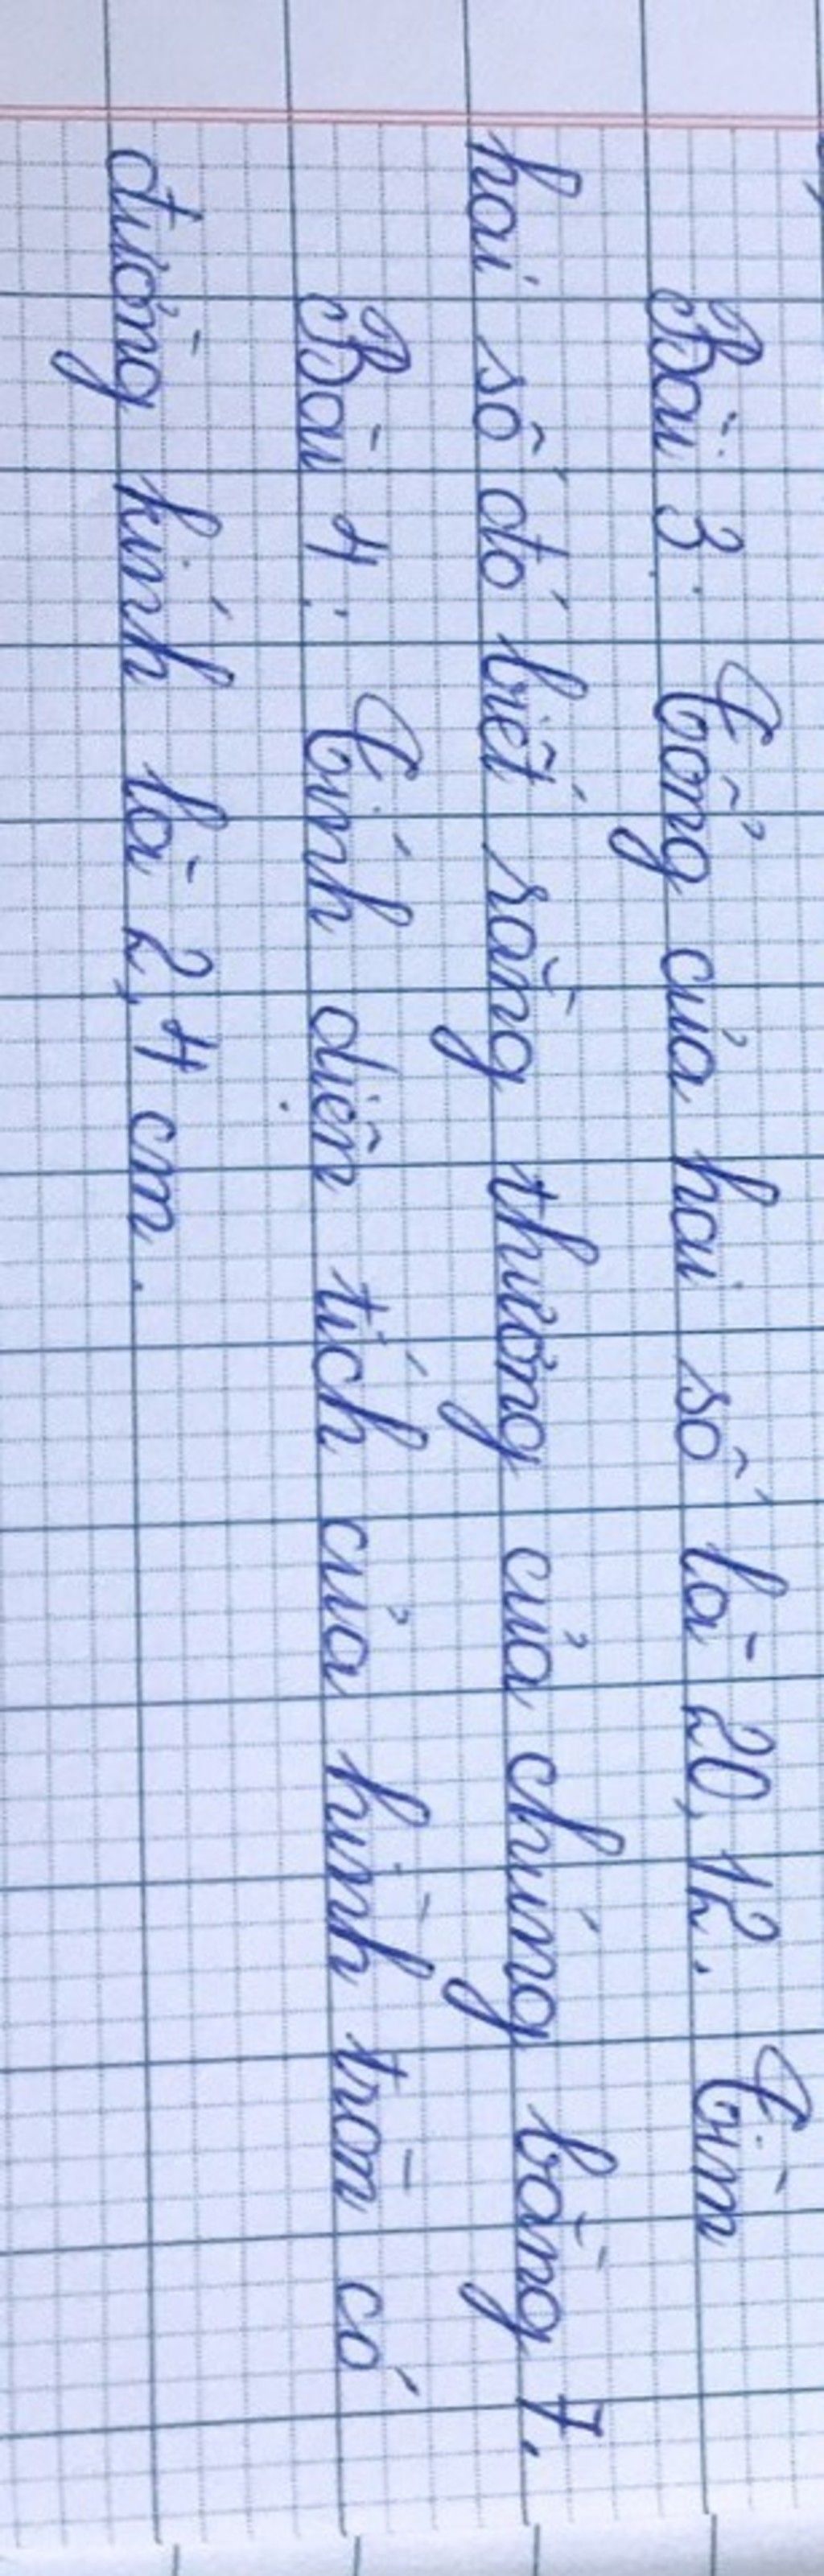 Bài 3: Tổng của hai số là 20,12. Tìm
hai số đó biết rằng thương của chúng bằng 7.
Bài 4: Tính diện tích của hình tròn có
đường kính là 2,4 cm.